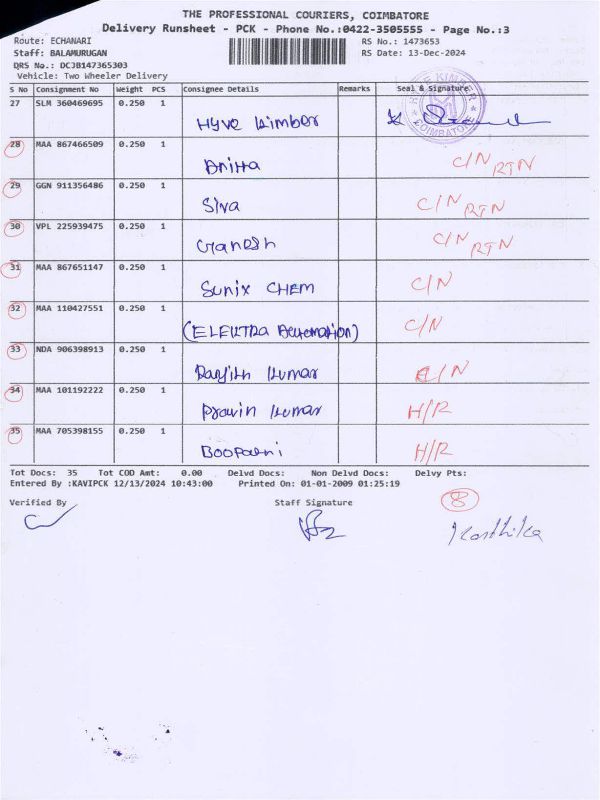 THE PROFESSIONAL COURIERS, COIMBATORE
Delivery Runsheet - PCK - Phone No.:0422-3505555 - Page No.:3
Route: ECHANARI RS No.: 1473653
Staff: BALAMURUGAN RS Date: 13-Dec-2024
DRS No.: DCJB147365303
Vehicle: Two Wheeler Delivery
S No Consignment No Weight PCS Consignee Details Remarks Seal & Signature
27 SLM 360469695 0.250 1 Hyve Kimber
HYVE KIMBER COIMBATORE
28 MAA 867466509 0.250 1 Anitta C/N RTN
29 GGN 911356486 0.250 1 Siva C/N RTN
30 VPL 225939475 0.250 1 Ganesh C/N RTN
31 MAA 867651147 0.250 1 Sunix CHEM C/N
32 MAA 110427551 0.250 1 (ELEKTRA Automation) C/N
33 NDA 906398913 0.250 1 Ranjith Kumar C/N
34 MAA 101192222 0.250 1 Pravin Kumar H/R
35 MAA 705398155 0.250 1 Boopathi H/R
Tot Docs: 35 Tot COD Amt: 0.00 Delvd Docs: Non Delvd Docs: Delvy Pts:
Entered By :KAVIPCK 12/13/2024 10:43:00 Printed On: 01-01-2009 01:25:19
Verified By Staff Signature 8
Karthika